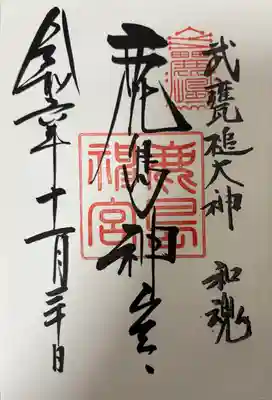 武甕槌大神 和魂
鹿島神宮
鹿島
神宮
令和六年十一月三十日